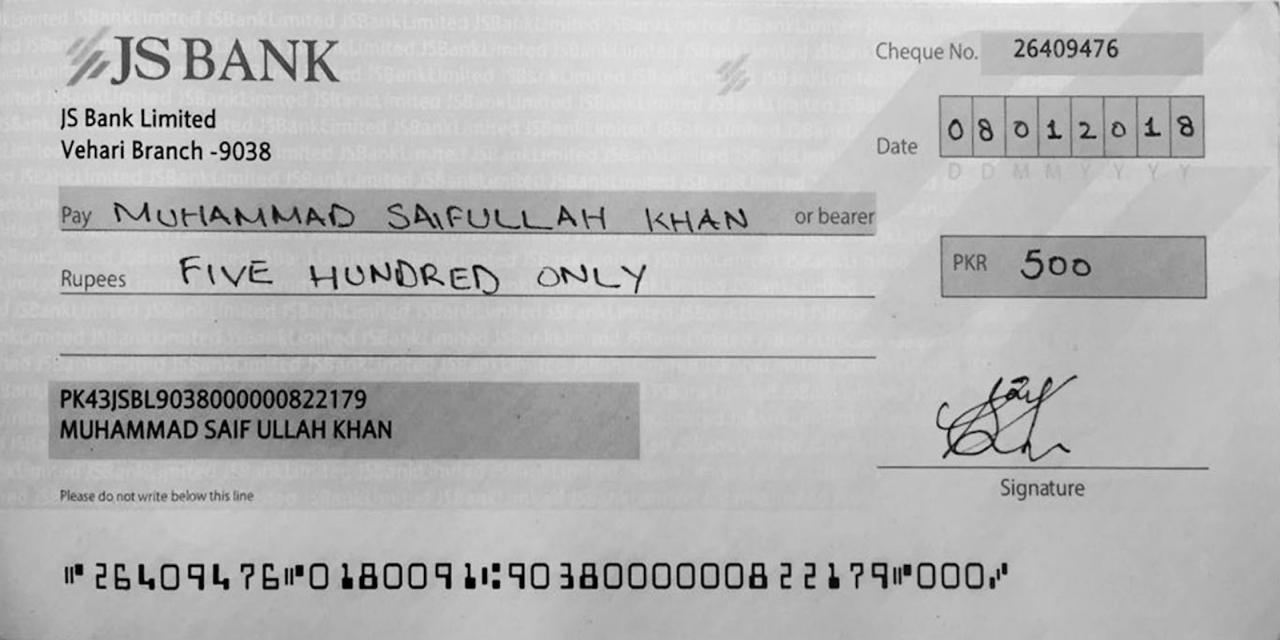 JS BANK
Cheque No. 26409476
JS Bank Limited
Vehari Branch -9038
Date 08012018
D D M M Y Y Y Y
Pay MUHAMMAD SAIFULLAH KHAN or bearer
Rupees FIVE HUNDRED ONLY
PKR 500
PK43JSBL9038000000822179
MUHAMMAD SAIF ULLAH KHAN
Signature
Please do not write below this line
⑈26409476⑈0180091⑆9038000000822179⑈000⑇